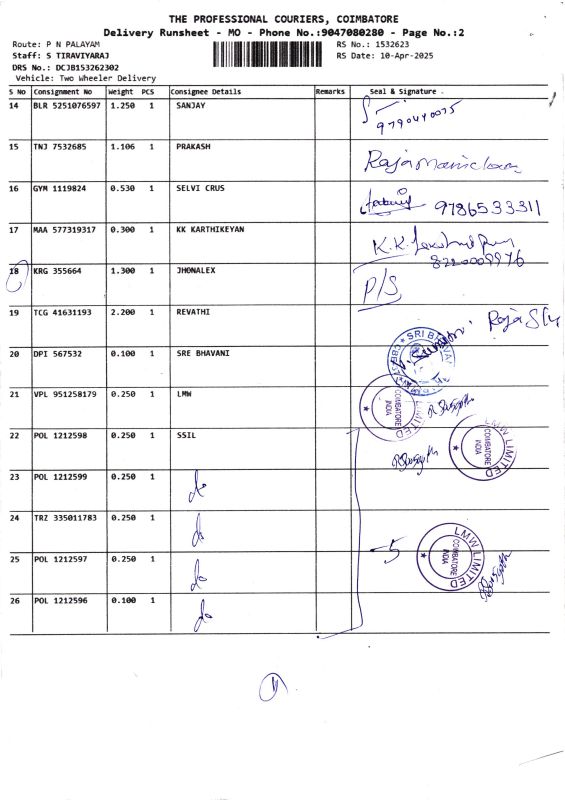 THE PROFESSIONAL COURIERS, COIMBATORE
Delivery Runsheet - MO - Phone No.:9047080280 - Page No.:2
Route: P N PALAYAM RS No.: 1532623
Staff: S TIRAVIYARAJ RS Date: 10-Apr-2025
DRS No.: DCJB153262302
Vehicle: Two Wheeler Delivery
S No Consignment No Weight PCS Consignee Details Remarks Seal & Signature .
14 BLR 5251076597 1.250 1 SANJAY
15 TNJ 7532685 1.106 1 PRAKASH
16 GYM 1119824 0.530 1 SELVI CRUS 9786533311
17 MAA 577319317 0.300 1 KK KARTHIKEYAN K.K.
8220009976
18 KRG 355664 1.300 1 JHONALEX P/S
19 TCG 41631193 2.200 1 REVATHI Raja
20 DPI 567532 0.100 1 SRE BHAVANI
21 VPL 951258179 0.250 1 LMW LMW LIMITED COIMBATORE INDIA
22 POL 1212598 0.250 1 SSIL LMW LIMITED COIMBATORE INDIA
23 POL 1212599 0.250 1 do
24 TRZ 335011783 0.250 1 do -5 LMW LIMITED COIMBATORE INDIA
25 POL 1212597 0.250 1 do
26 POL 1212596 0.100 1 do